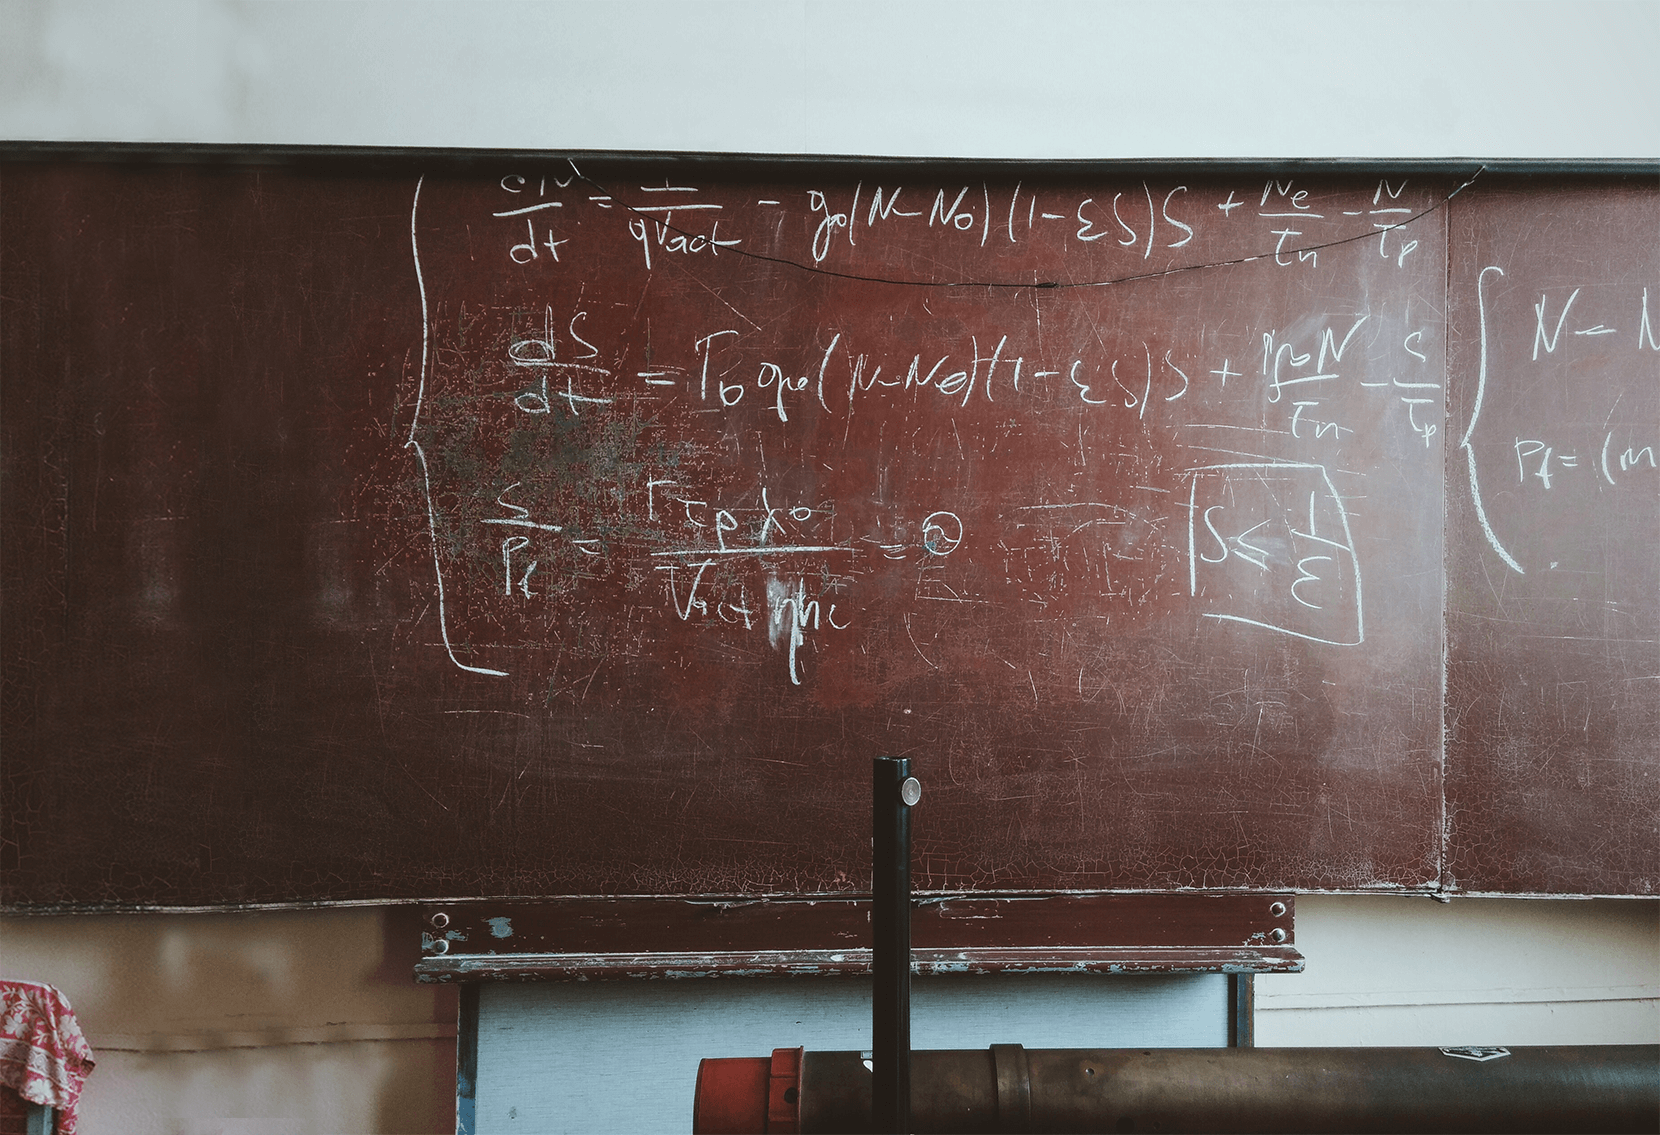 dN/dt = 1/qVact - g0(N-N0)(1-εS)S + Ne/τn - N/τp
dS/dt = Γ0 g0(N-N0)(1-εS)S + Γβ0N/τn - S/τp
S/Pf = Γτpλ0/Vactηhc = ②
S ≤ 1/ε
N - N
Pf = (m